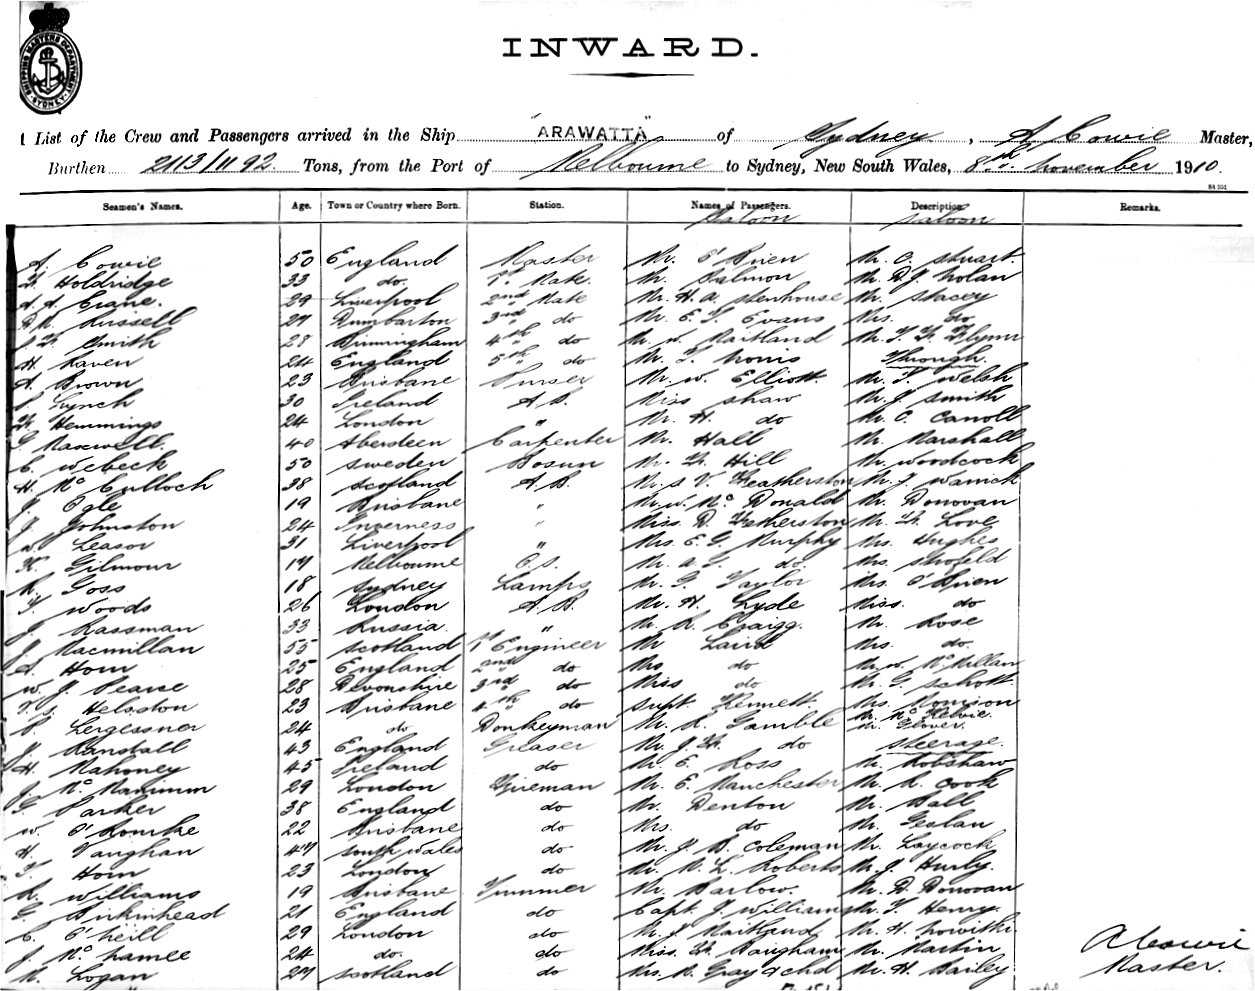 SHIPPING MASTERS DEPARTMENT SYDNEY
INWARD.
List of the Crew and Passengers arrived in the Ship "ARAWATTA" of Sydney, A Cowie Master,
Burthen 2113/1192 Tons, from the Port of Melbourne to Sydney, New South Wales, 8th November 1910.
Seamen's Names. Age. Town or Country where Born. Station. Names of Passengers. Description. Remarks.
Saloon Saloon
A Cowie 50 England Master Mr. O'Brien Mr. C. Stuart
Holdridge 33 do. 1st Mate. Mr. Salmon Mr. D. J. Nolan
Crane. 29 Liverpool 2nd Mate Mr. H. A. Stenhouse Mr. Stacey
Russell 27 Dumbarton 3rd do Mr. E. T. Evans Mrs. do
Smith 28 Birmingham 4th do Mr. W. Maitland Mr. Flynn
H. Raven 24 England 5th do Mr. T. Through.
A. Brown 23 Brisbane Purser Mr. W. Elliott Mr. T. Welsh
Lynch 30 Ireland A.B. Miss Shaw Mr. J. Smith
Hemmings 24 London " Mr. H. do Mr. C. Carroll
G. Maxwell. 40 Aberdeen Carpenter Mr. Hall Mr. Marshall
C. Webeck 50 Sweden Bosun Mr. Hill Mr. Woodcock
H. McCulloch 38 Scotland A.B. V. Featherston Mr. J. Warnick
J. Ogle 19 Brisbane " Mr. W. McDonald Mr. Donovan
J. Johnston 24 Inverness " Miss. D. Fetherston Mr. Love
Leason 31 Liverpool " Mrs. E. G. Murphy Mrs. Hughes
Gilmour 17 Melbourne O.S. Mr. A. G. do. Mrs.
R. Goss 18 Sydney Lamps Mr. G. Taylor Mrs. O'Brien
T. Woods 26 London A.B. Mr. H. Lyde Miss. do
J. Kassman 33 Russia. " Mr. R. Craigg. Mr. Rose
J. Macmillan 55 Scotland 1st Engineer Mr Laird Mrs. do.
A. Horn 25 England 2nd do Mrs do Mr. W. McMillan
W. J. Pearce 28 Devonshire 3rd do Miss do Mr. G. Schott
Helsdon 23 Brisbane 4th do Supt. Kennett. Mrs. Morrison
24 do Donkeyman Mr. R. Gamble Mr. McKelvie.
Mr. Glover.
J. Randall 43 England Greaser Mr. J. do Steerage.
H. Mahoney 45 Ireland do Mr. E. Ross Mr. Robshaw
J. 29 London Fireman Mr. E. Manchester Mr. R. Cook
G. Parker 38 England do Mr. Denton Mr. Ball
W. O'Rourke 22 Brisbane do Mrs. do Mr. Geslan
H. Vaughan 47 South Wales do Mr. J. B. Coleman Mr. Laycock
T. Horn 23 London do Mr. R. L. Roberts Mr. J. Hurly.
R. Williams 19 Brisbane Trimmer Mr. Barlow. Mr. D. Donovan
G. Birkinhead 21 England do Capt. J. Williams Mr. T. Henry.
C. O'Neill 29 London do Mr. J. Maitland Mr. H. Howith
J. McNamee 24 do. do Miss. Baugham Mr. Martin
M. Logan 27 Scotland do Mrs. R. Gray & chd Mr. H. Bailey.
A Cowie
Master.